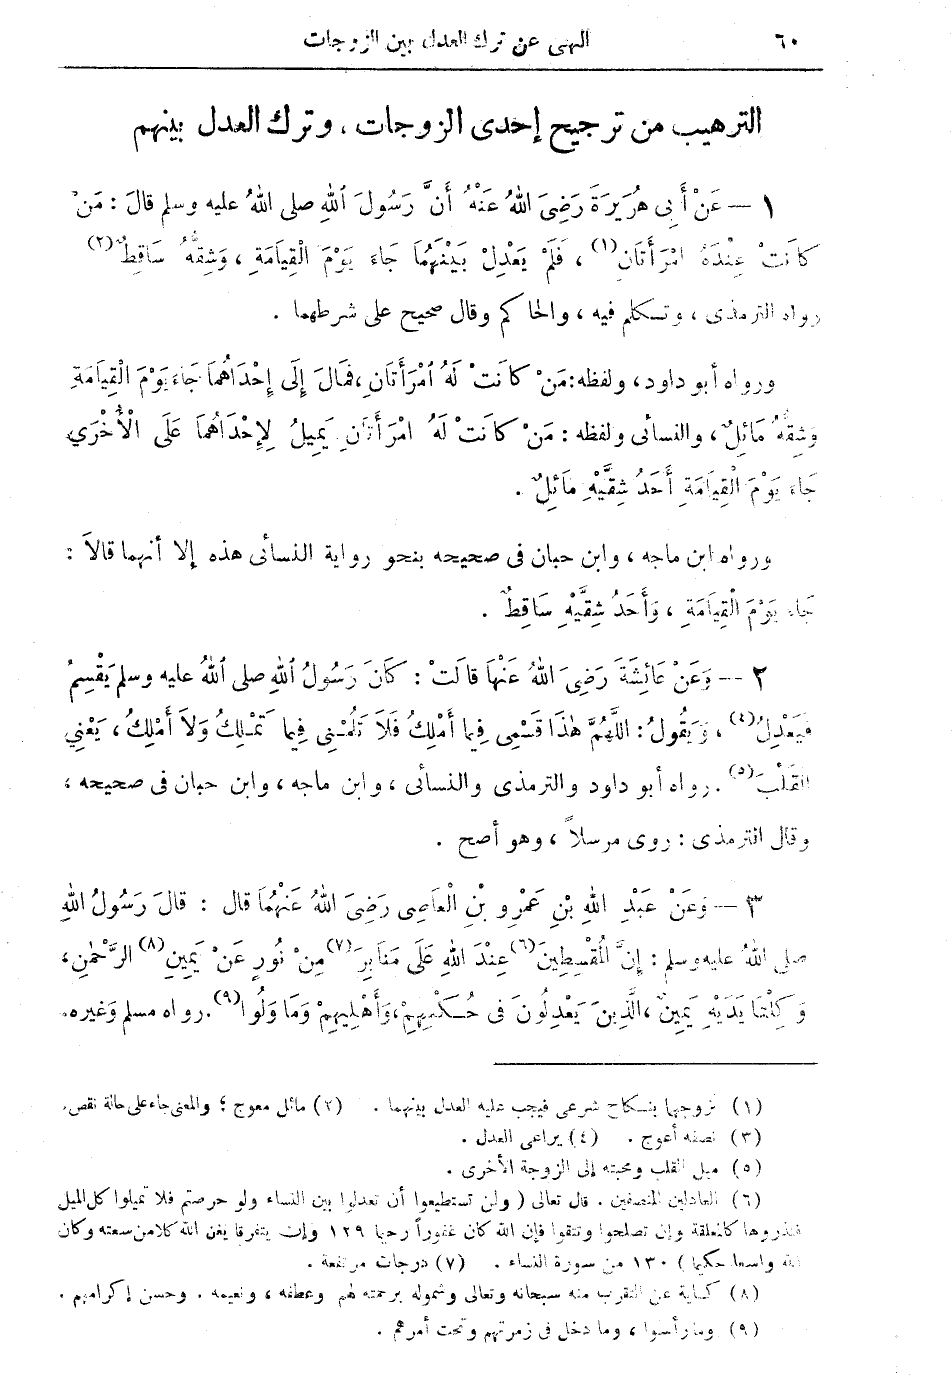 ٦٠ النهى عن ترك العدل بين الزوجات
الترهيب من ترجيح إحدى الزوجات ، وترك العدل بينهم
١ — عَنْ أَبِى هُرَيرَةَ رَضِىَ اللهُ عَنْهُ أَنَّ رَسُولَ اللهِ صلى اللهُ عليه وسلم قالَ : مَنْ
كَانَتْ عِنْدَهُ امْرَأَتَانِ(١) ، فَلَمْ يَعْدِلْ بَيْنَهُمَا جَاءَ يَوْمَ الْقِيَامَةِ ، وَشِقُّهُ سَاقِطٌ(٢)
رواه الترمذى ، وتكلم فيه ، والحاكم وقال صحيح على شرطهما .
ورواه أبو داود، ولفظه: مَنْ كَانَتْ لَهُ امْرَأَتَانِ ، فَمَالَ إِلَى إِحْدَاهُمَا جَاءَ يَوْمَ الْقِيَامَةِ
وَشِقُّهُ مَائِلٌ ، والنسائى ولفظه : مَنْ كَانَتْ لَهُ امْرَأَتَانِ يَمِيلُ لِإِحْدَاهُمَا عَلَى الْأُخْرَي
جَاءَ يَوْمَ الْقِيَامَةِ أَحَدُ شِقَّيْهِ مَائِلٌ .
ورواه ابن ماجه ، وابن حبان فى صحيحه بنحو رواية النسائى هذه إلا أنهما قالاَ :
جَاءَ يَوْمَ الْقِيَامَةِ ، وَأَحَدُ شِقَّيْهِ سَاقِطٌ .
٢ — وَعَنْ عَائِشَةَ رَضِىَ اللهُ عَنْهَا قَالَتْ : كَانَ رَسُولُ اللهِ صلى اللهُ عليه وسلم يَقْسِمُ
فَيَعْدِلُ(٤) ، وَيَقُولُ : اللَّهُمَّ هٰذَا قَسْمِى فِيمَا أَمْلِكُ فَلَا تَلُمْنِى فِيمَا تَمْلِكُ وَلاَ أَمْلِكُ ، يَعْنِي
القَلْبَ(٥) . رواه أبو داود والترمذى والنسائى ، وابن ماجه ، وابن حبان فى صحيحه ،
وقال الترمذى : روى مرسلاً ، وهو أصح .
٣ — وَعَنْ عَبْدِ اللهِ بْنِ عَمْرِو بْنِ الْعَاصِى رَضِىَ اللهُ عَنْهُمَا قال : قالَ رَسُولُ اللهِ
صلى اللهُ عليه وسلم : إِنَّ الْمُقْسِطِينَ(٦) عِنْدَ اللهِ عَلَى مَنَابِرَ(٧) مِنْ نُورٍ عَنْ يَمِينِ(٨) الرَّحْمٰنِ ،
وَكِلْتَا يَدَيْهِ يَمِينٌ ، الَّذِينَ يَعْدِلُونَ فِى حُكْمِهِمْ ، وَأَهْلِيهِمْ وَمَا وَلُوا(٩) . رواه مسلم وَغيره.
(١) تزوجها بنكاح شرعى فيجب عليه العدل بينهما . (٢) مائل معوج ؛ والمعنى جاء على حالة نقص.
(٣) نصفه أعوج . (٤) يراعى العدل .
(٥) ميل القلب ومحبته إلى الزوجة الأخرى .
(٦) العادلين المنصفين . قال تعالى ( ولن تستطيعوا أن تعدلوا بين النساء ولو حرصتم فلا تميلوا كل الميل
فتذروها كالمعلقة وإن تصلحوا وتتقوا فإن الله كان غفوراً رحيما ١٢٩ وإن يتفرقا يغن الله كلا من سعته وكان
الله واسعا حكيما ) ١٣٠ من سورة النساء . (٧) درجات مرتفعة .
(٨) كناية عن التقرب منه سبحانه وتعالى وشموله برحمته لهم وعطفه ، ونعيمه . وحسن إكرامهم .
(٩) وما رأسوا ، وما دخل فى زمرتهم وتحت أمرهم .